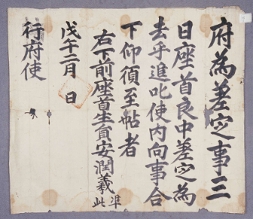 府爲差定事三
日座首良中差定爲
去乎進叱使內向事合
下仰須至帖者
右下前座首生員安潤羲 準此
戊午二月 日
行府使